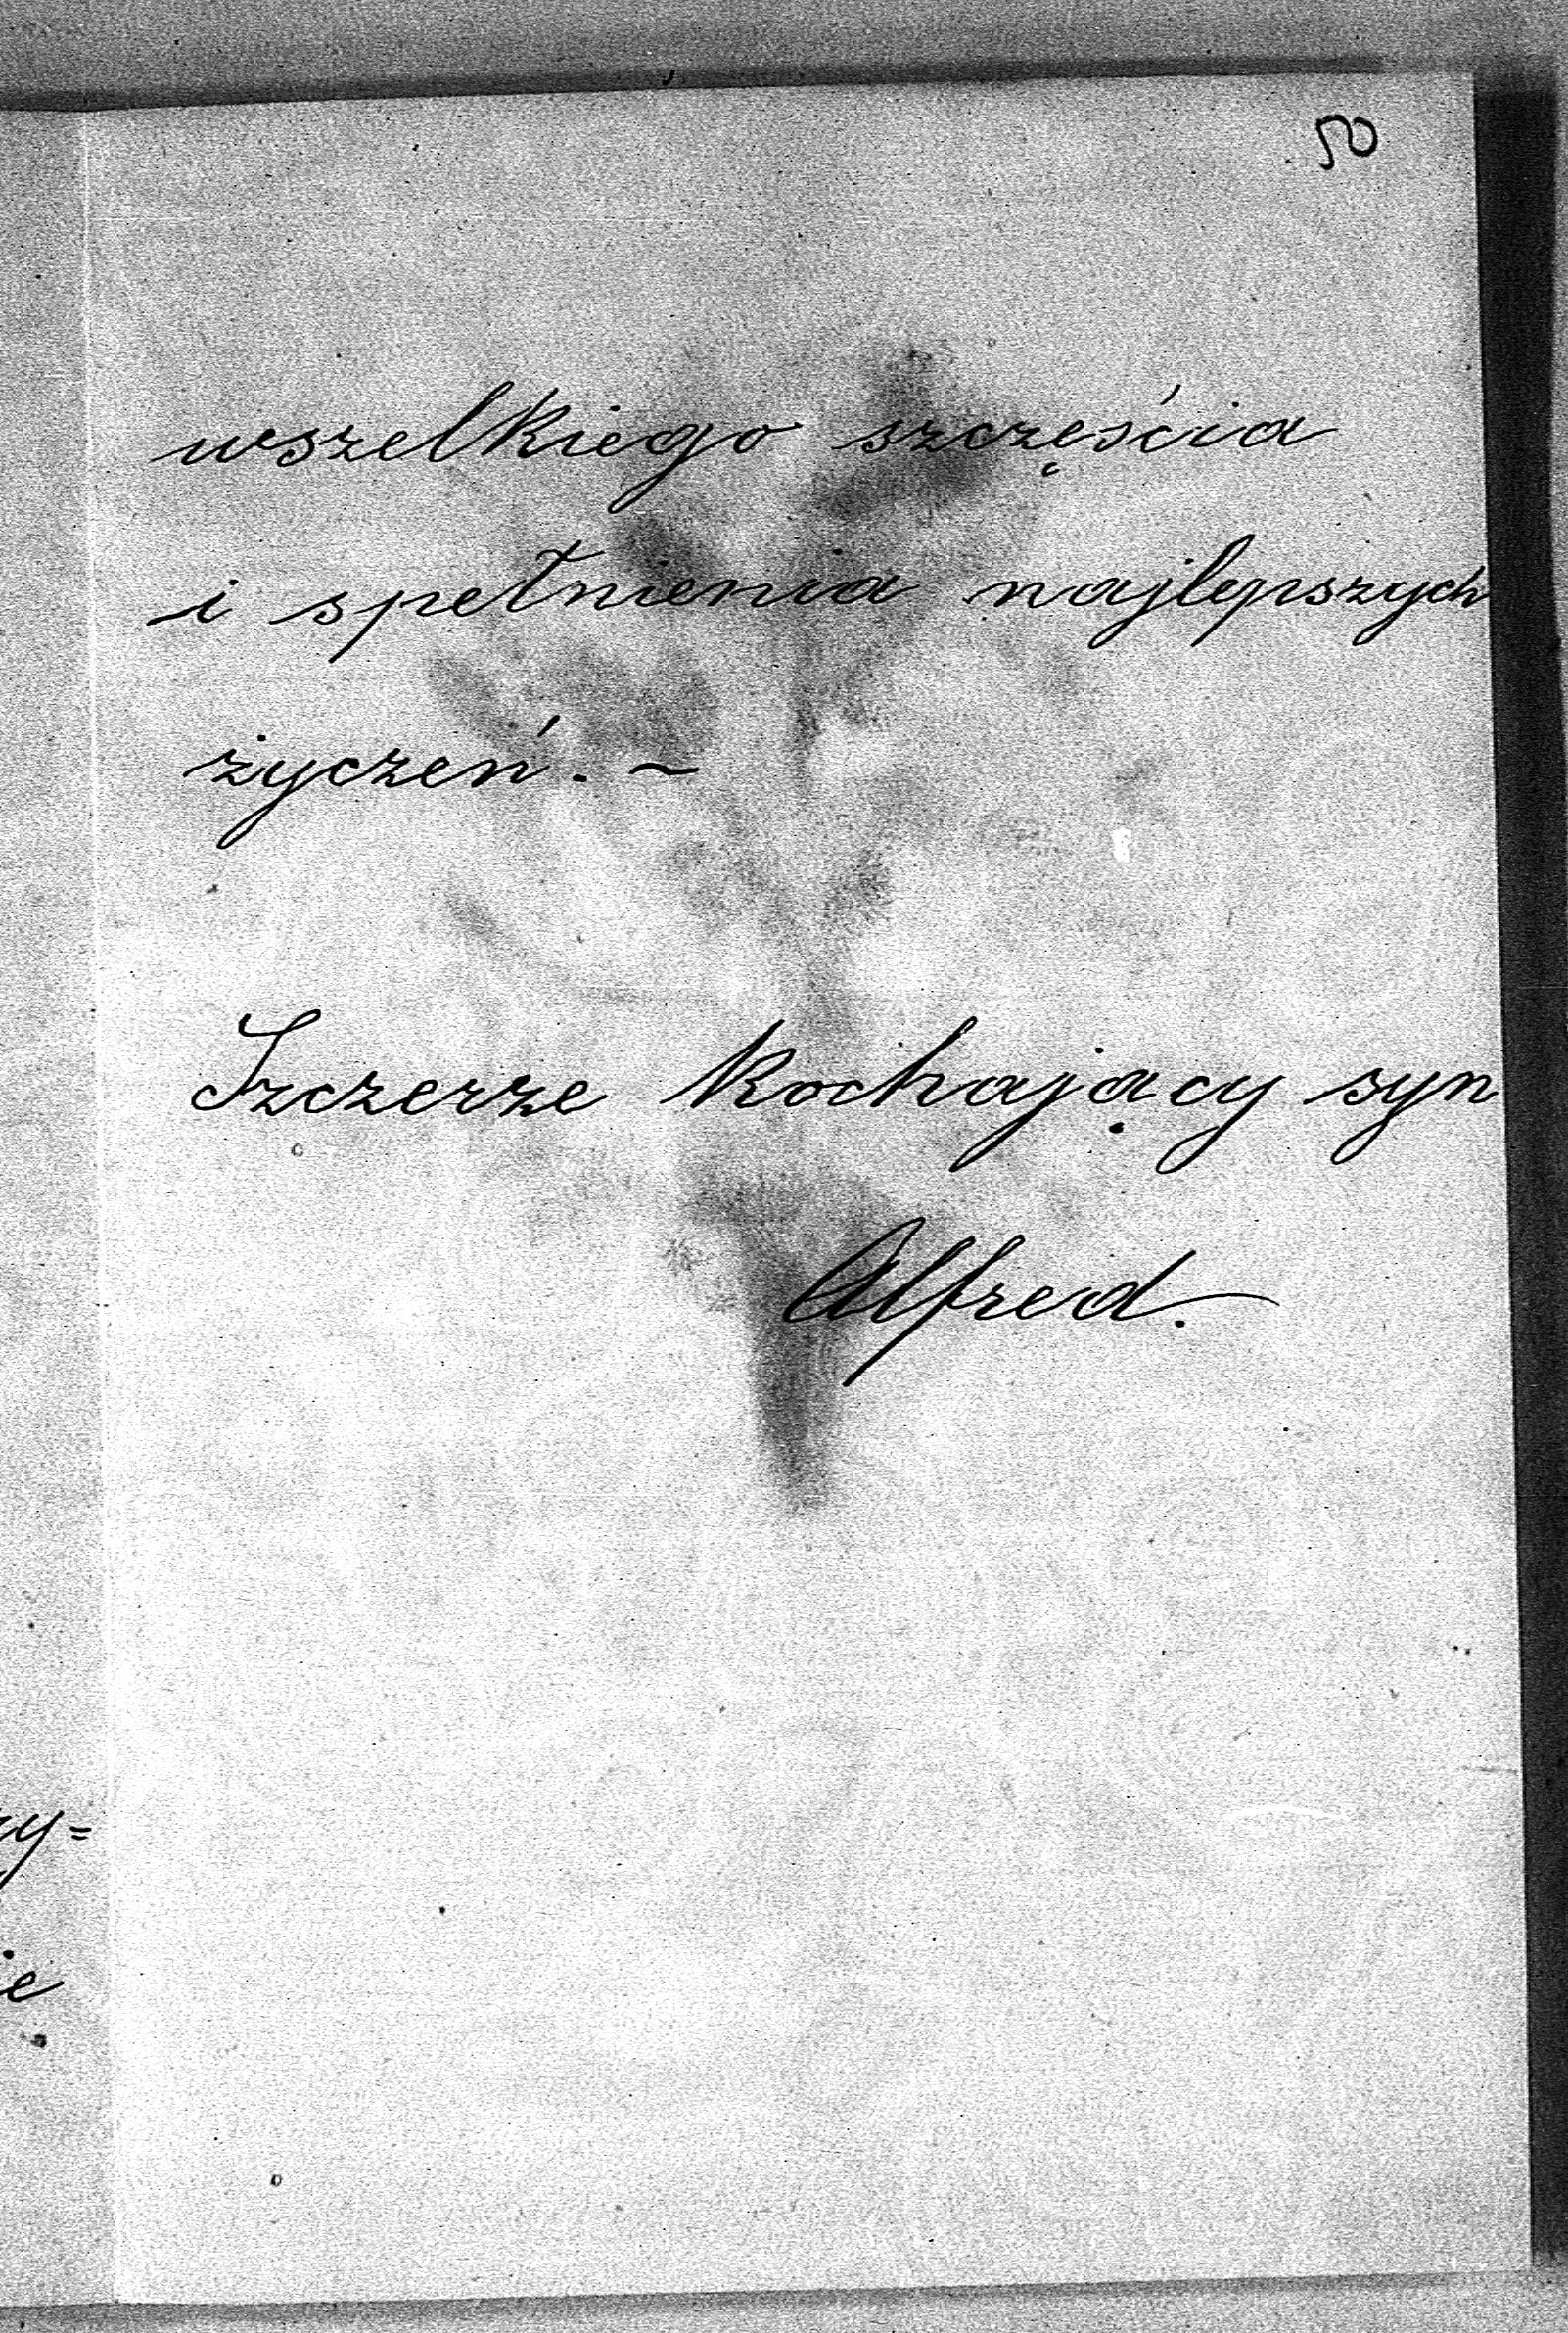 50
wszelkiego szczęścia
i spełnienia najlepszych
życzeń. ~
Szczerze kochający syn
Alfred.